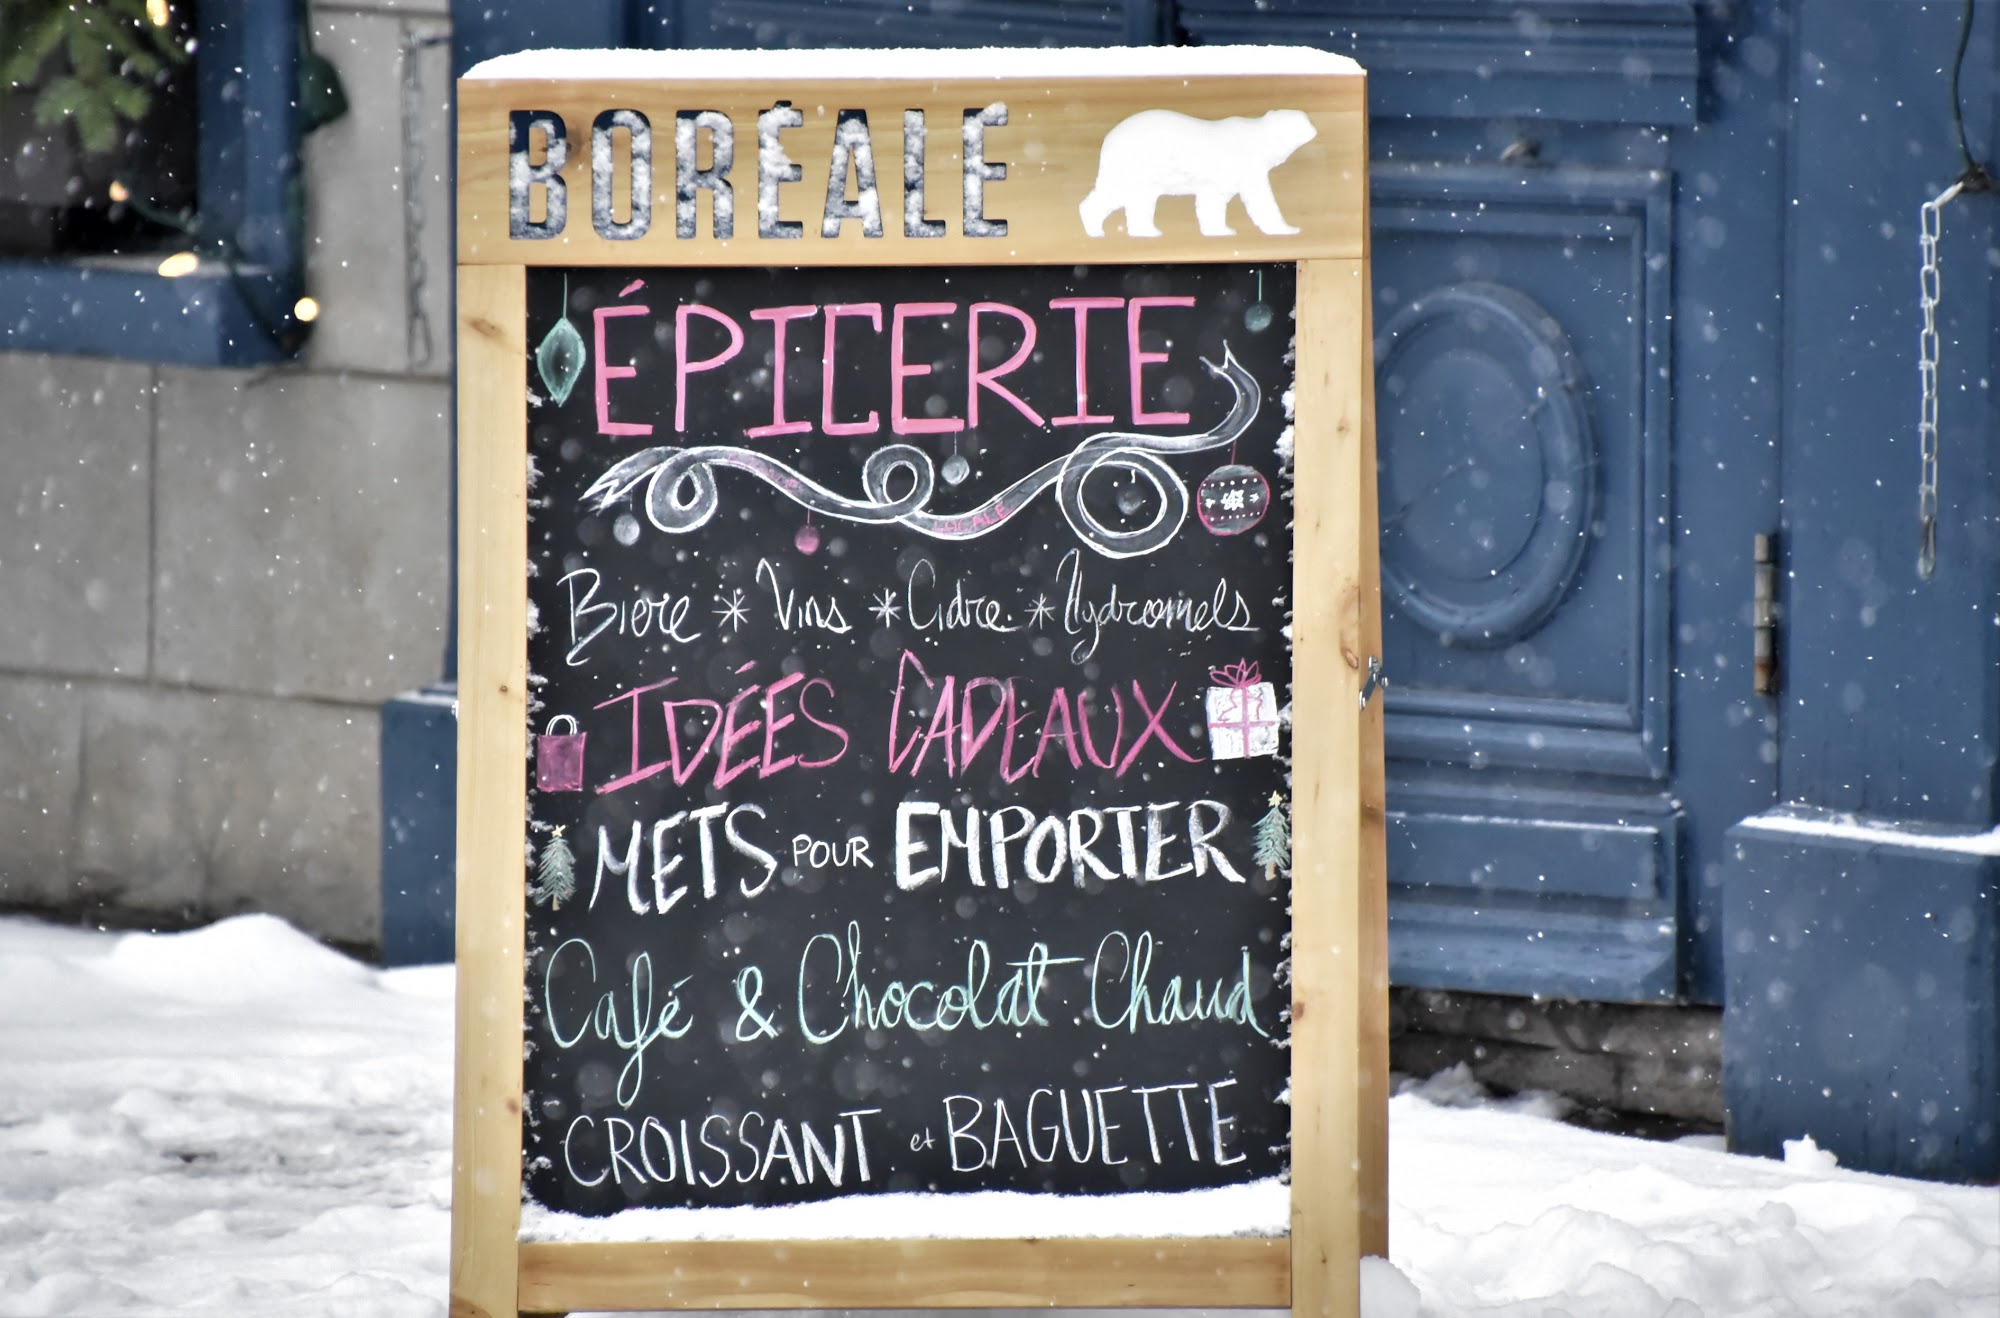 BORÉALE
ÉPICERIE
LOCALE
Bière * Vins * Cidre * Hydromels
IDÉES CADEAUX
METS POUR EMPORTER
Café & Chocolat Chaud
CROISSANT et BAGUETTE